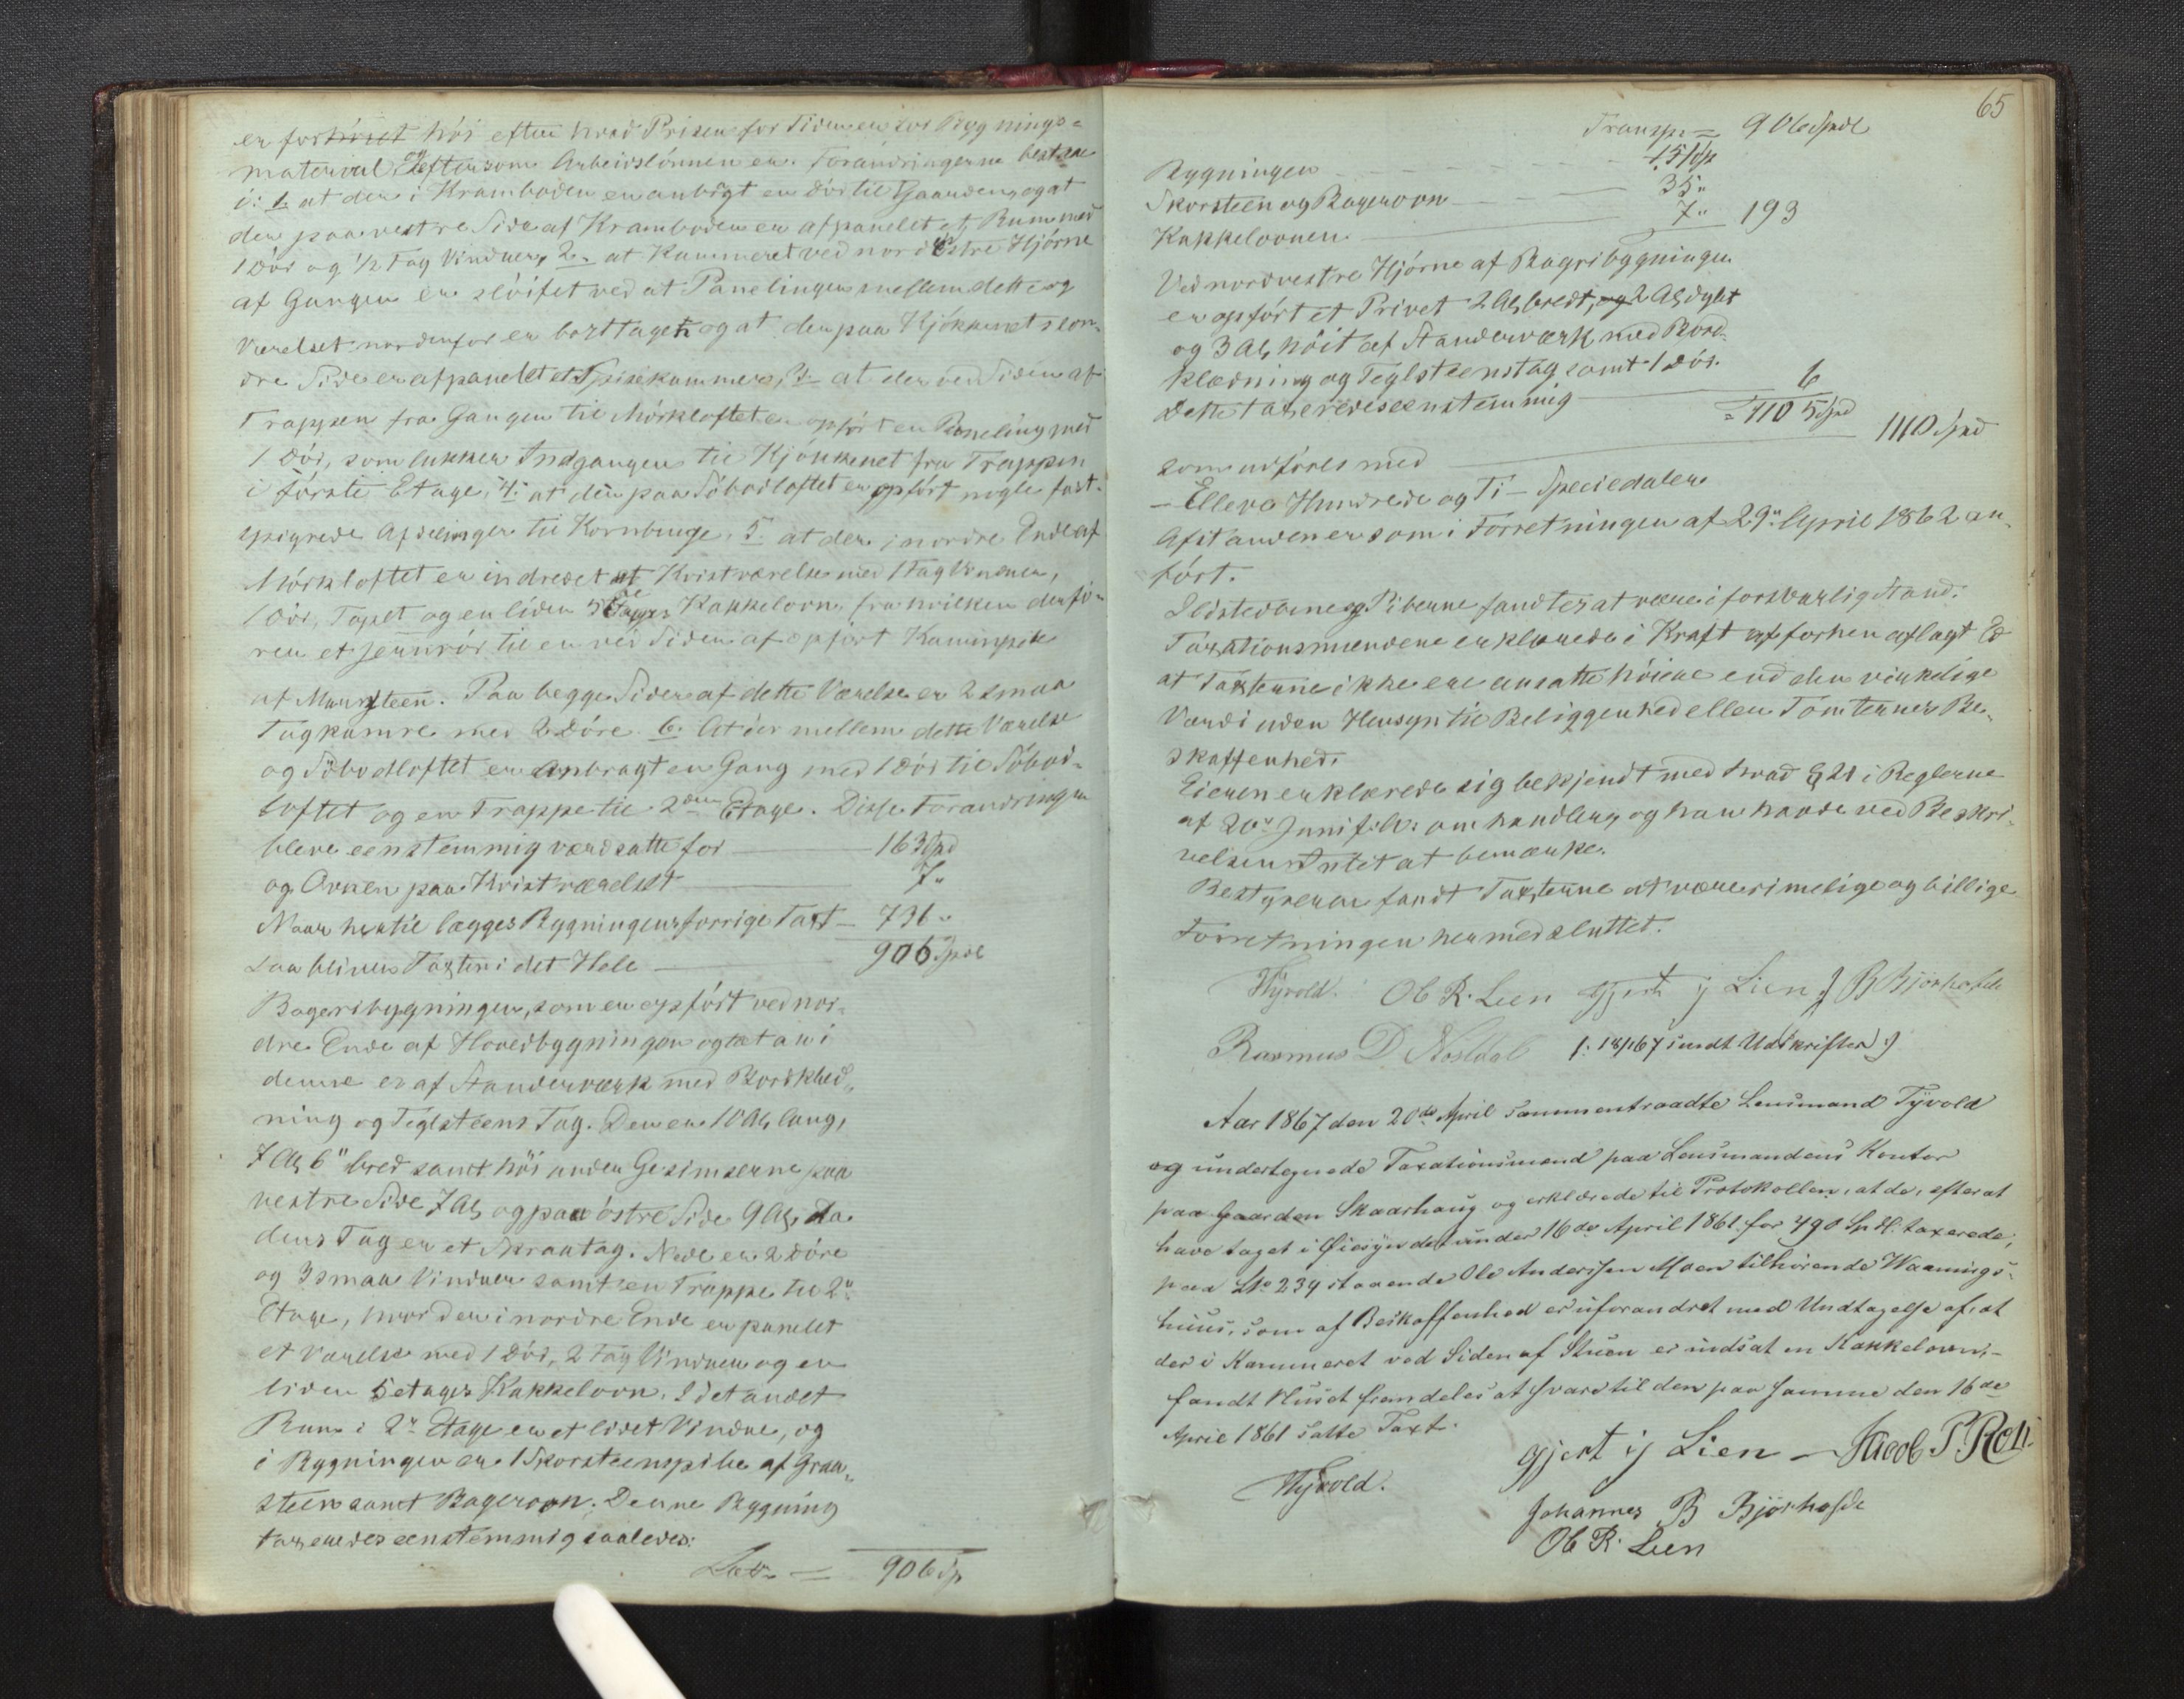 er forhöiet höi efter hvad Prisen for Tiden er for Bygnings-
material og eftersom Arbeidslönnen er. Forandringerne bestaae
i: 1. at der i Kramboden er anbragt en Dör til Gaarden, og at
der paa vestre Side af Kramboden er afpanelet et Rum med
1 Dör og ½ Fag Vinduer, 2. at Kammeret ved nordöstre Hjörne
af Gangen er slöifet ved at Panelingen mellem dette og
Værelset nordenfor er borttaget og at der paa Kjökkenets son-
dre Side er afpanelet et Spisekammer, 3. at der ved Siden af
Trappen fra Gangen til Mörkloftet er opfört en Paneling med
1 Dör, som lukker Indgangen til Kjökkenet fra Trappen
i förste Etage, 4. at der paa Söbodloftet er opfört nogle fast-
spigrede Afdelinger til Kornbinge, 5. at der i nordre Ende af
Mörkloftet er indredet et Kvistværelse med 1 Fag Vinduer,
1 Dör, Tapet og en liden 3 Etages Kakkelovn, fra hvilken der fö-
rer et Jernrör til en ved Siden af opfört Kaminpibe
af Muursteen. Paa begge Sider af dette Værelse er 2 smaa
Tagkamre med 2 Döre. 6. At der mellem dette Værelse
og Söbodloftet er anbragt en Gang med 1 Dör til Söbod-
loftet og en Trappe til 2den Etage. Disse Forandringer
bleve eenstemmig værdsatte for 163 Spd
og Ovnen paa Kvistværelset 7 "
Naar hertil lægges Bygningens forrige Taxt 736 "
saa bliver Taxten i det Hele 906 Spdl
Bageribygningen, som er opfört ved nor-
dre Ende af Hovedbygningen og tæt an i
denne er af Standerværk med Bordklæd-
ning og Teglsteens Tag. Den er 10 Al, lang,
7 Al, 6" bred samt höi under Gesimserne paa
vestre Side 7 Al, og paa östre Side 9 Al, da
dens Tag er et Skraatag. Nede er 2 Döre
og 3 smaa Vinduer samt en Trappe til 2n
Etage, hvor der i nordre Ende er panelet
et Værelse med 1 Dör, 2 Fag Vinduer og en
liden 5 etages Kakkelovn. I det andet
Rum i 2n Etage er et lidet Vindue, og
i Bygningen er 1 Skorsteenspibe af Graa-
steen samt Bagerovn. Denne Bygning
taxeredes eenstemmig saaledes:
Lat. = 906 Sp
65
Transp = 906 Spdl
Bygningen 151 Sp
Skorsteen og Bagerovn 35 "
Kakkelovnen 7 " 193
Ved nordvestre Hjörne af Bageribygningen
er opfört et Privet 2 Al, bredt, og 2 Al, dybt
og 3 Al, höit af Standerværk med Bord-
klædning og Teglsteenstag samt 1 Dör.
Dette taxeredes eenstemmig 6
= 1105 Spd
som udföres med 1110 Spd
– Elleve Hundrede og Ti – Speciedaler.
Afstanden er som i Forretningen af 29n April 1862 an-
fört.
Ildstederne og Piberne fandtes at være i forsvarlig Stand.
Taxationsmændene erklærede i Kraft af forhen aflagt Ed
at Taxterne ikke ere ansatte höiere end den virkelige
Værdi uden Hensyn til Beliggenhed eller Tomternes Be-
skaffenhed.
Eieren erklærede sig bekjendt med hvad § 21 i Reglerne
af 20n Juni f. A. omhandler, og han havde ved Beskri-
velsen Intet at bemærke.
Bestyreren fandt Taxterne at være rimelige og billige
Forretningen hermed sluttet.
Tÿvold. Ob R. Lien Gjert ij Lien J B Bjørhofde
Rasmus D Nostdal (: 18/1 67 sendt Udskrifter :)
Aar 1867 den 20de April sammentraadte Lensmand Tÿvold
og undertegnede Taxationsmænd paa Lensmandens Kontor
paa Gaarden Skaarhaug og erklærede til Protokollen, at de, efterat
have taget i Öiesyn det under 16de April 1861 for 490 Spdl. taxerede,
paa No 239 staaende Ole Anderssen Moen tilhørende Vaanings-
huus, som af Beskaffenhed er uforandret med Undtagelse af, at
der i Kammeret ved Siden af Stuen er indsat en Kakkelovn, –
fandt Huset fremdeles at svare til den paa samme den 16de
April 1861 satte Taxt.
Tÿvold.
Gjert ij Lien – Jacob P. Roti
Johannes B Bjørhofde
Ob R. Lien